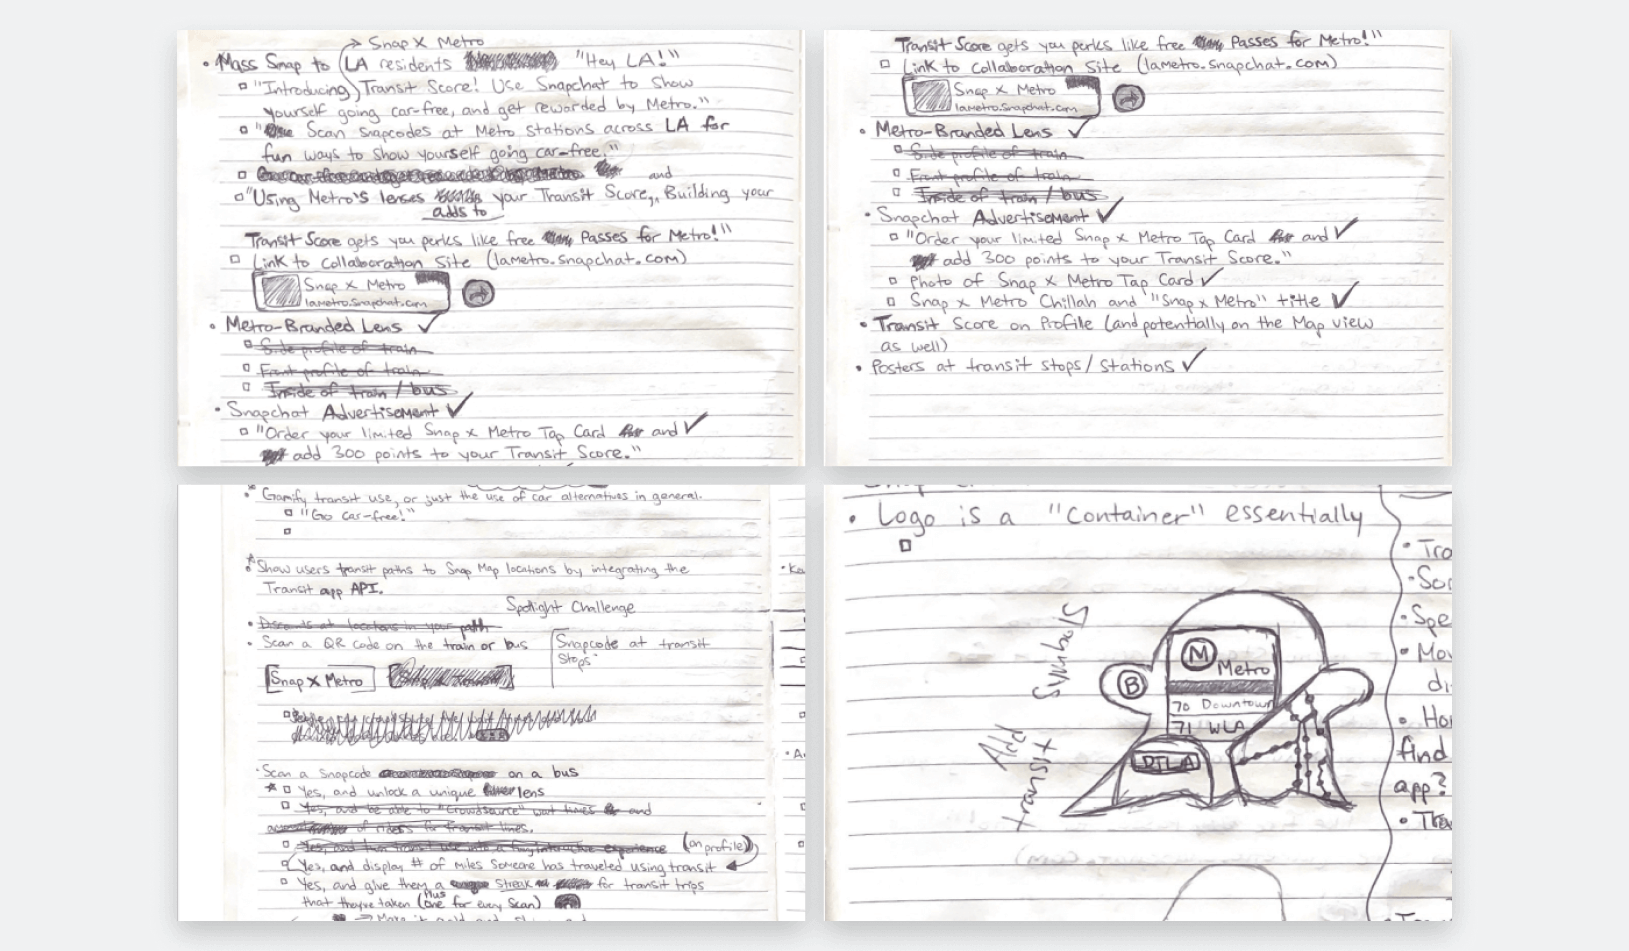 → Snap X Metro
• Mass Snap to LA residents "Hey LA!"
▫ "Introducing Transit Score! Use Snapchat to show
yourself going car-free, and get rewarded by Metro."
▫ " Scan snapcodes at Metro stations across LA for
fun ways to show yourself going car-free."
▫ and
▫ "Using Metro's lenses your Transit Score, Building your
adds to
Transit Score gets you perks like free Passes for Metro!"
▫ Link to Collaboration Site (lametro.snapchat.com)
Snap X Metro
lametro.snapchat.com
• Metro-Branded Lens ✓
▫ Side profile of train
▫ Front profile of train
▫ Inside of train / bus
• Snapchat Advertisement ✓
▫ "Order your limited Snap x Metro Tap Card and ✓
add 300 points to your Transit Score."
Transit Score gets you perks like free Passes for Metro!"
▫ Link to Collaboration Site (lametro.snapchat.com)
Snap X Metro
lametro.snapchat.com
• Metro-Branded Lens ✓
▫ Side profile of train
▫ Front profile of train
▫ Inside of train / bus
• Snapchat Advertisement ✓
▫ "Order your limited Snap x Metro Tap Card and ✓
add 300 points to your Transit Score."
▫ Photo of Snap x Metro Tap Card ✓
▫ Snap x Metro Chillah and "Snap x Metro" title ✓
• Transit Score on Profile (and potentially on the Map view
as well)
• Posters at transit stops/stations ✓
• Gamify transit use, or just the use of car alternatives in general.
▫ "Go car-free!"
▫
• Show users transit paths to Snap Map locations by integrating the
Transit app API.
Spotlight Challenge
• Discounts at locations in your path
• Scan a QR code on the train or bus
Snapcode at transit
stops
Snap X Metro
• Scan a Snapcode on a bus
* ▫ Yes, and unlock a unique lens
▫ Yes, and be able to "crowdsource" wait times and
of riders for transit lines.
▫ Yes, and turn transit use into a fun, interactive experience
(on profile)
▫ Yes, and display # of miles someone has traveled using transit
▫ Yes, and give them a streak for transit trips
that they've taken (plus one for every scan)
• Logo is a "Container" essentially
▫
Add transit symbols
M
Metro
B
70 Downtown
71 WLA
DTLA
• Tra
• Soc
• Spe
• Mov
di
• Ho
find
app?